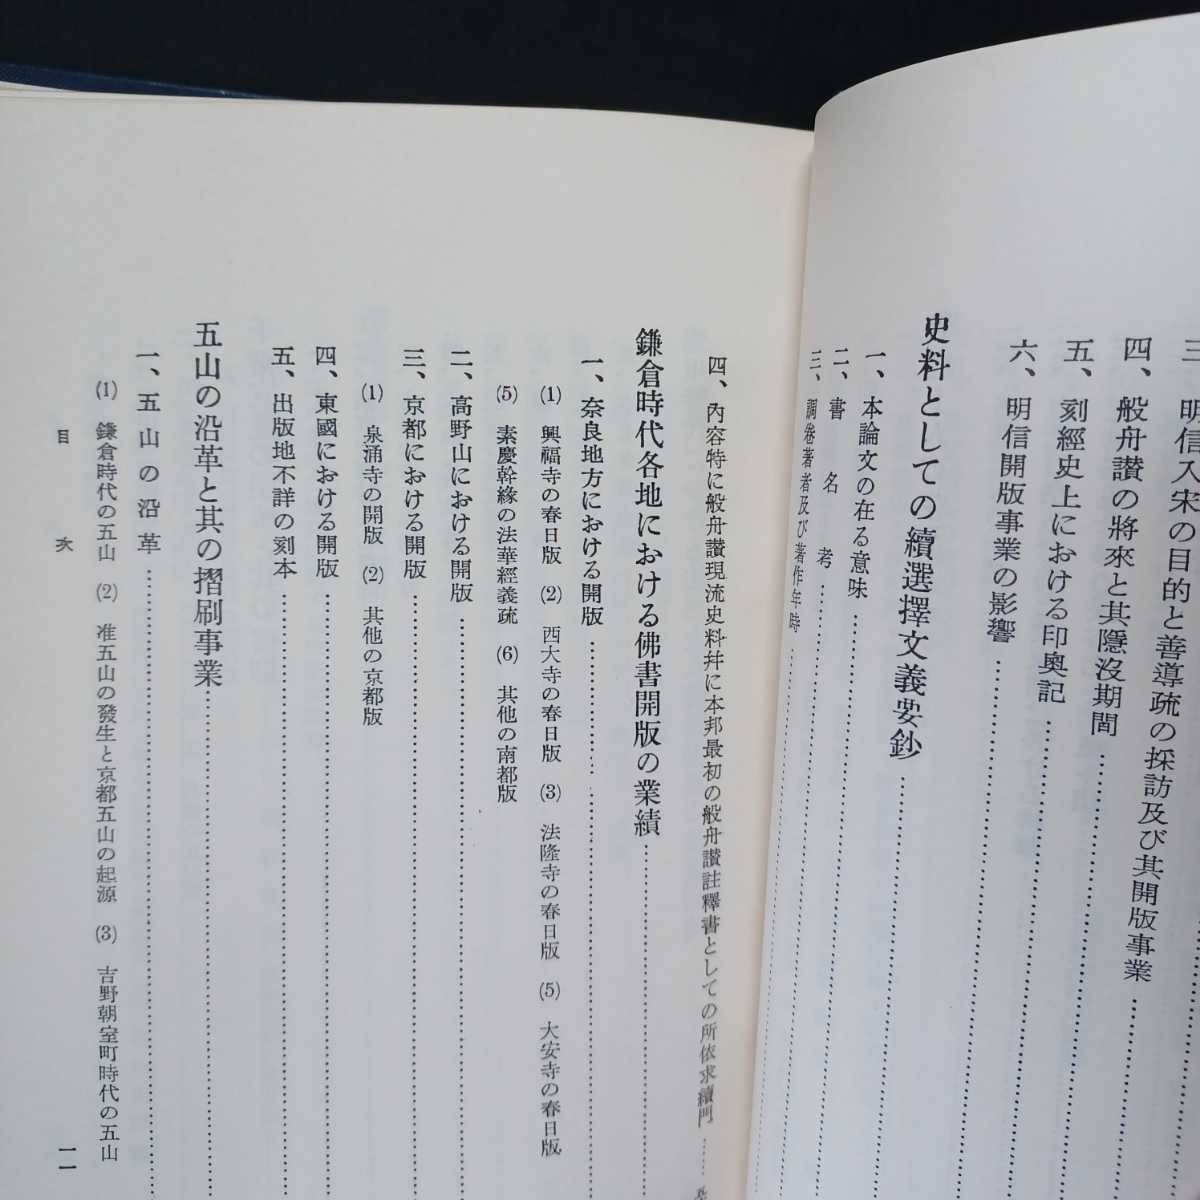 三、明信入宋の目的と善導疏の採訪及び其開版事業
四、般舟讃の將來と其隱沒期間
五、刻經史上における印奧記
六、明信開版事業の影響
史料としての續選擇文義要鈔
一、本論文の在る意味
二、書名考
三、調卷著者及び著作年時
四、內容特に般舟讃現流史料幷に本邦最初の般舟讃註釋書としての所依求續門
鎌倉時代各地における佛書開版の業績
一、奈良地方における開版
(1) 興福寺の春日版 (2) 西大寺の春日版 (3) 法隆寺の春日版 (5) 大安寺の春日版
(5) 素慶幹緣の法華經義疏 (6) 其他の南都版
二、高野山における開版
三、京都における開版
(1) 泉涌寺の開版 (2) 其他の京都版
四、東國における開版
五、出版地不詳の刻本
五山の沿革と其の摺刷事業
一、五山の沿革
(1) 鎌倉時代の五山 (2) 准五山の發生と京都五山の起源 (3) 吉野朝室町時代の五山
目次
一一